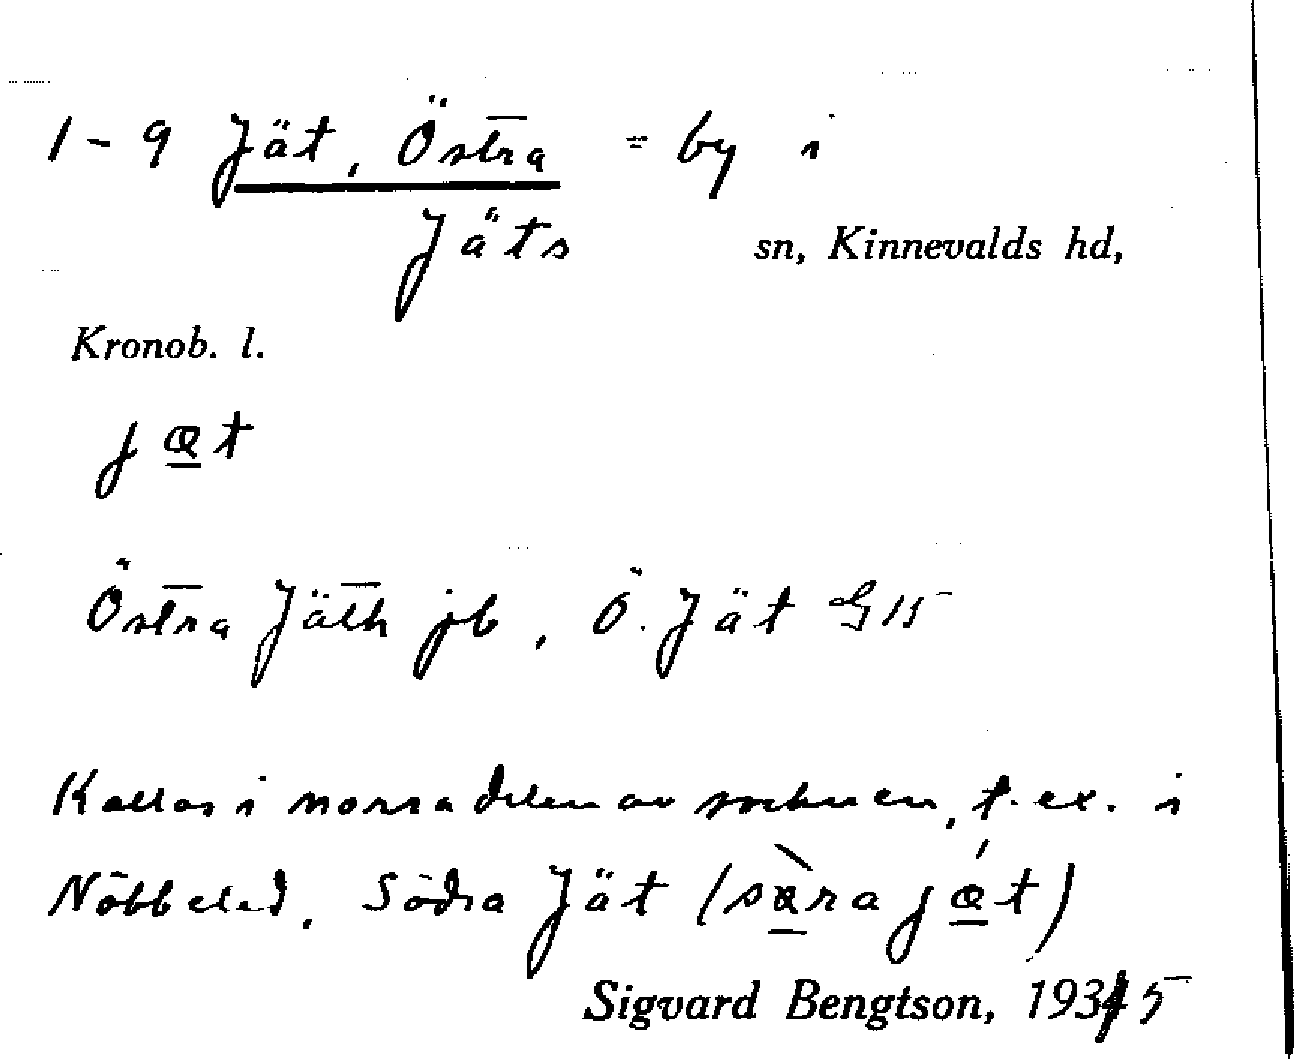 1-9 Jät, Östra = by i
Jäts sn, Kinnevalds hd,
Kronob. l.
jæt
Östra Jäth jb, Ö. Jät G 15
Kallas i norra delen av socknen, t. ex. i
Nöbbeled, Södra Jät (særa jæt)
Sigvard Bengtson, 1935